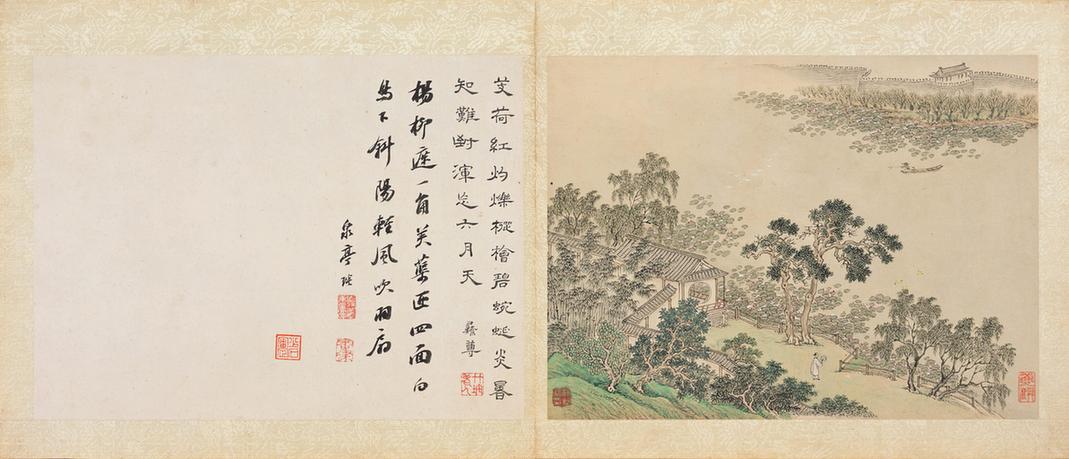 芰荷紅灼爍樅檜碧蜿蜒炎暑
知難到渾忘六月天
彝尊
楊柳遮一角芙蕖匝四面白
鳥下斜陽輕風吹羽扇
泉亭